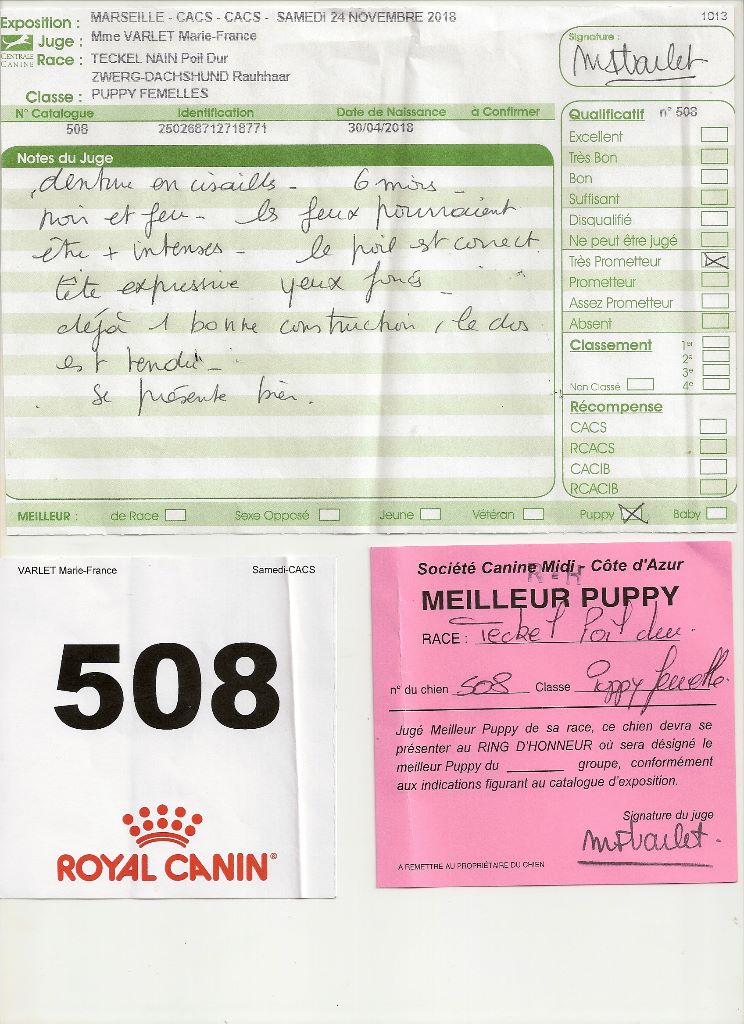 Exposition : MARSEILLE - CACS - CACS - SAMEDI 24 NOVEMBRE 2018
1013
Juge : Mme VARLET Marie-France
CENTRALE CANINE
Race : TECKEL NAIN Poil Dur
ZWERG-DACHSHUND Rauhhaar
Classe : PUPPY FEMELLES
Signature :
MFVarlet
N° Catalogue Identification Date de Naissance à Confirmer
508 250268712718771 30/04/2018
Notes du Juge
denture en cisailles - 6 mois -
noir et feu - les feux pourraient
être + intenses - le poil est correct
tête expressive yeux foncés -
déjà 1 bonne construction, le dos
est tendu -
se présente bien.
Qualificatif n° 508
Excellent
Très Bon
Bon
Suffisant
Disqualifié
Ne peut être jugé
Très Prometteur
Prometteur
Assez Prometteur
Absent
Classement 1er
2e
3e
Non Classé 4e
Récompense
CACS
RCACS
CACIB
RCACIB
MEILLEUR : de Race Sexe Opposé Jeune Vétéran Puppy Baby
VARLET Marie-France Samedi-CACS
508
ROYAL CANIN®
Société Canine Midi - Côte d'Azur
MEILLEUR PUPPY
RACE : Teckel Poil dur
n° du chien 508 Classe Puppy femelle
Jugé Meilleur Puppy de sa race, ce chien devra se
présenter au RING D'HONNEUR où sera désigné le
meilleur Puppy du ______ groupe, conformément
aux indications figurant au catalogue d'exposition.
Signature du juge
MFVarlet
A REMETTRE AU PROPRIÉTAIRE DU CHIEN